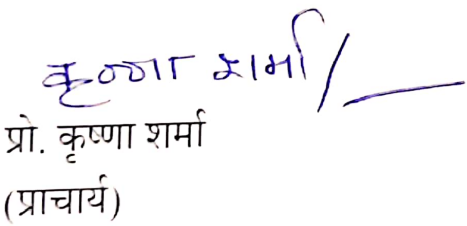 कृष्णा शर्मा
प्रो. कृष्णा शर्मा
(प्राचार्य)